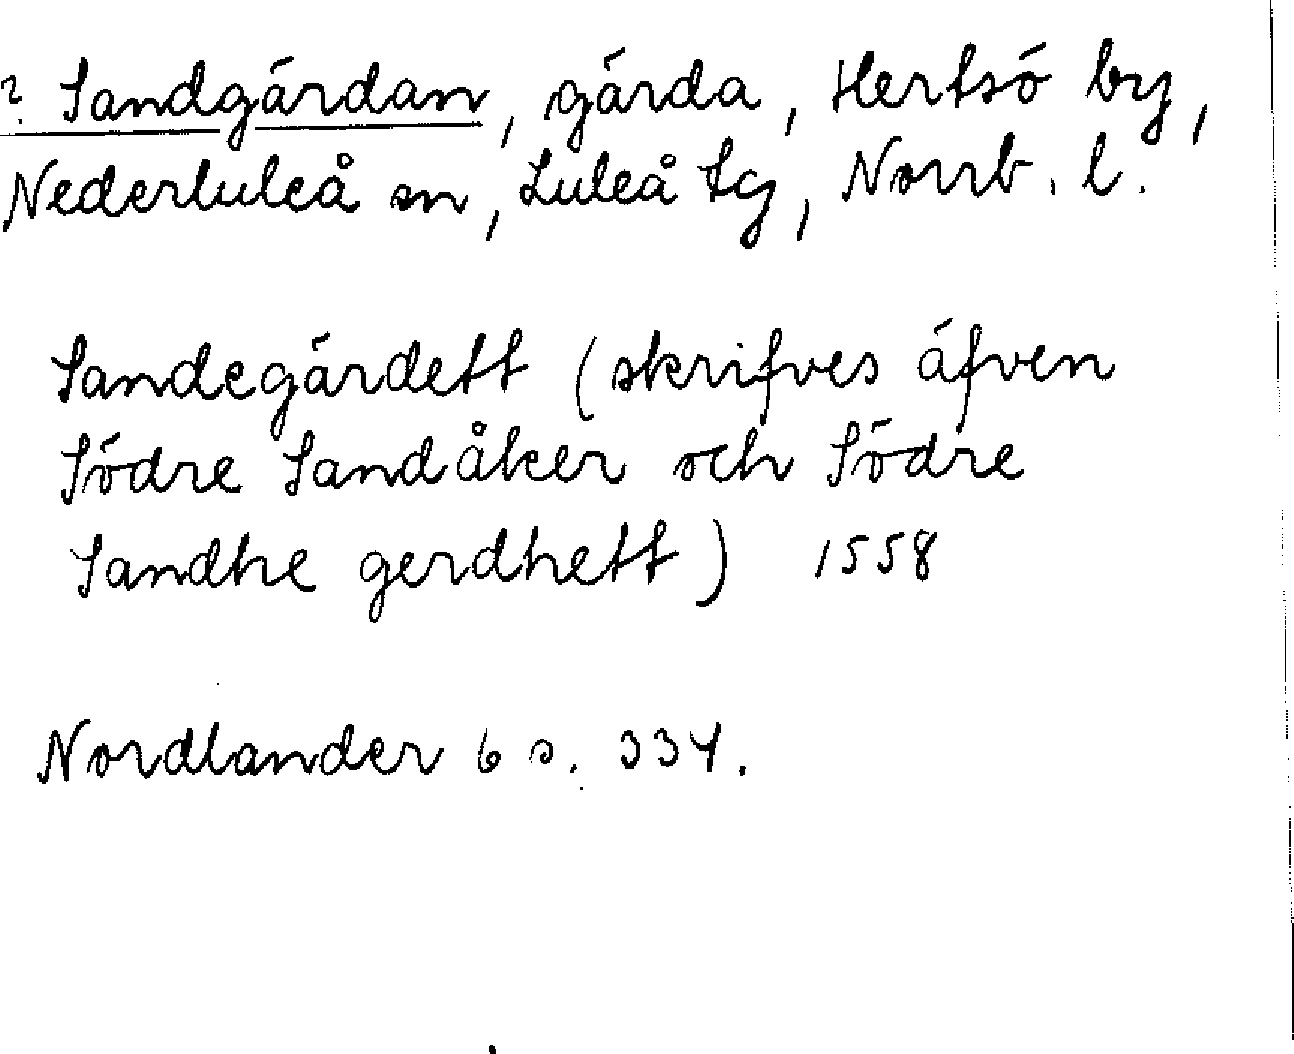 ? Sandgärdan, gärda, Hertsö by,
Nederluleå sn, Luleå tg, Norrb. l.
Sandegärdett (skrifves äfven
Södre Sandåker och Södre
Sandhe gerdhett) 1558
Nordlander 6 s. 334.